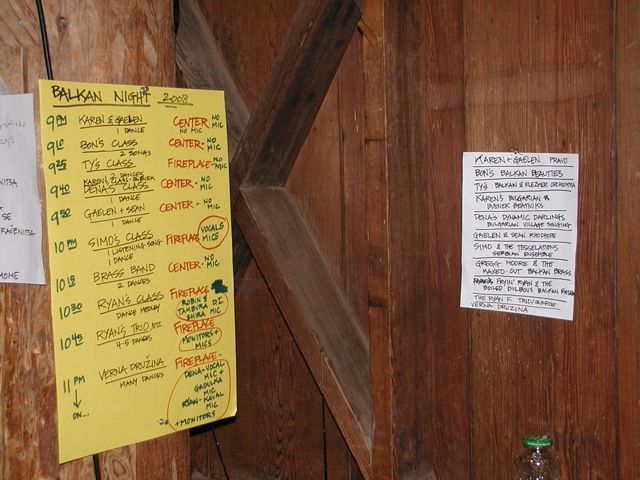 BALKAN NIGHT 2008
9 PM KAREN & GAELEN CENTER NO MIC
1 DANCE NO MIC
9 10 BON'S CLASS CENTER - NO MIC
2 SONGS
9 25 TY'S CLASS FIREPLACE - NO MIC
2 DANCES
9 40 DENA'S CLASS CENTER - NO MIC
1 DANCE
9 50 GAELEN + SEAN CENTER - NO MIC
1 DANCE
10 PM SIMO'S CLASS FIREPLACE VOCALS MICS
1 LISTENING SONG
1 DANCE
10 15 BRASS BAND CENTER - NO MIC
2 DANCES
10 30 RYAN'S CLASS FIREPLACE
DANCE MEDLEY ROBIN & D.I.
TAMBURA MIC
SHIRA
10 45 RYAN'S TRIO, ETC. FIREPLACE
4-5 DANCES MONITORS + MICS
11 PM VERNA DRUŽINA FIREPLACE -
MANY DANCES DENA - VOCAL
MIC +
GADULKA
MIC
RYAN - KAVAL
MIC
ON... + MONITORS
KAREN + GAELEN PRAVO
BON'S BALKAN BEAUTIES
TY'S BALKAN & KLEZMER ORCHESTRA
KAREN'S BULGARIAN &
BEATNIKS
DENA'S DYNAMIC DARLINGS
BULGARIAN VILLAGE SINGING
GAELEN & SEAN RHODOPE
SIMO & THE TESSELATIONS
SERBIAN ENSEMBLE
GREGG MOORE & THE
MAXED-OUT BALKAN BRASS
FRYIN' RYAN & THE
BOILED BALKAN
THE RYAN F. TRIO/QUARTET
VERNA DRUZINA
NITSA
SE
RAČENITSA
HOME